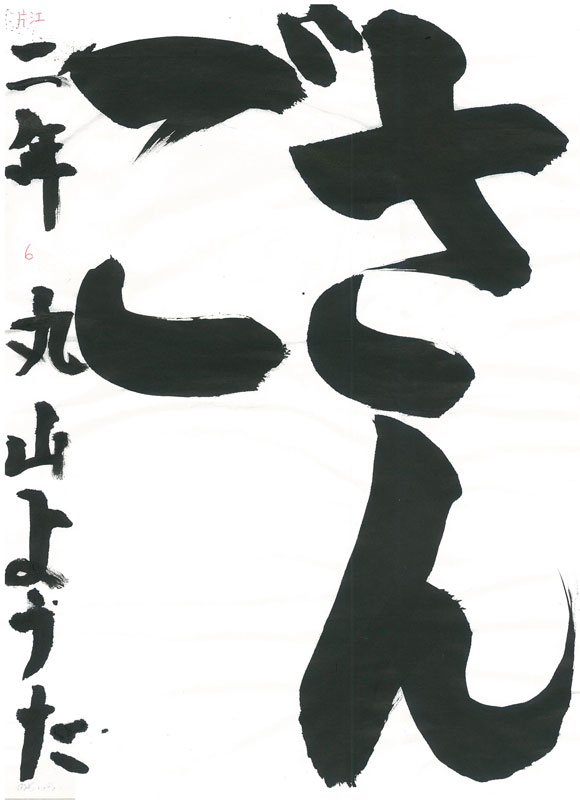 さん
ご
二年 丸山ようた
片江
6